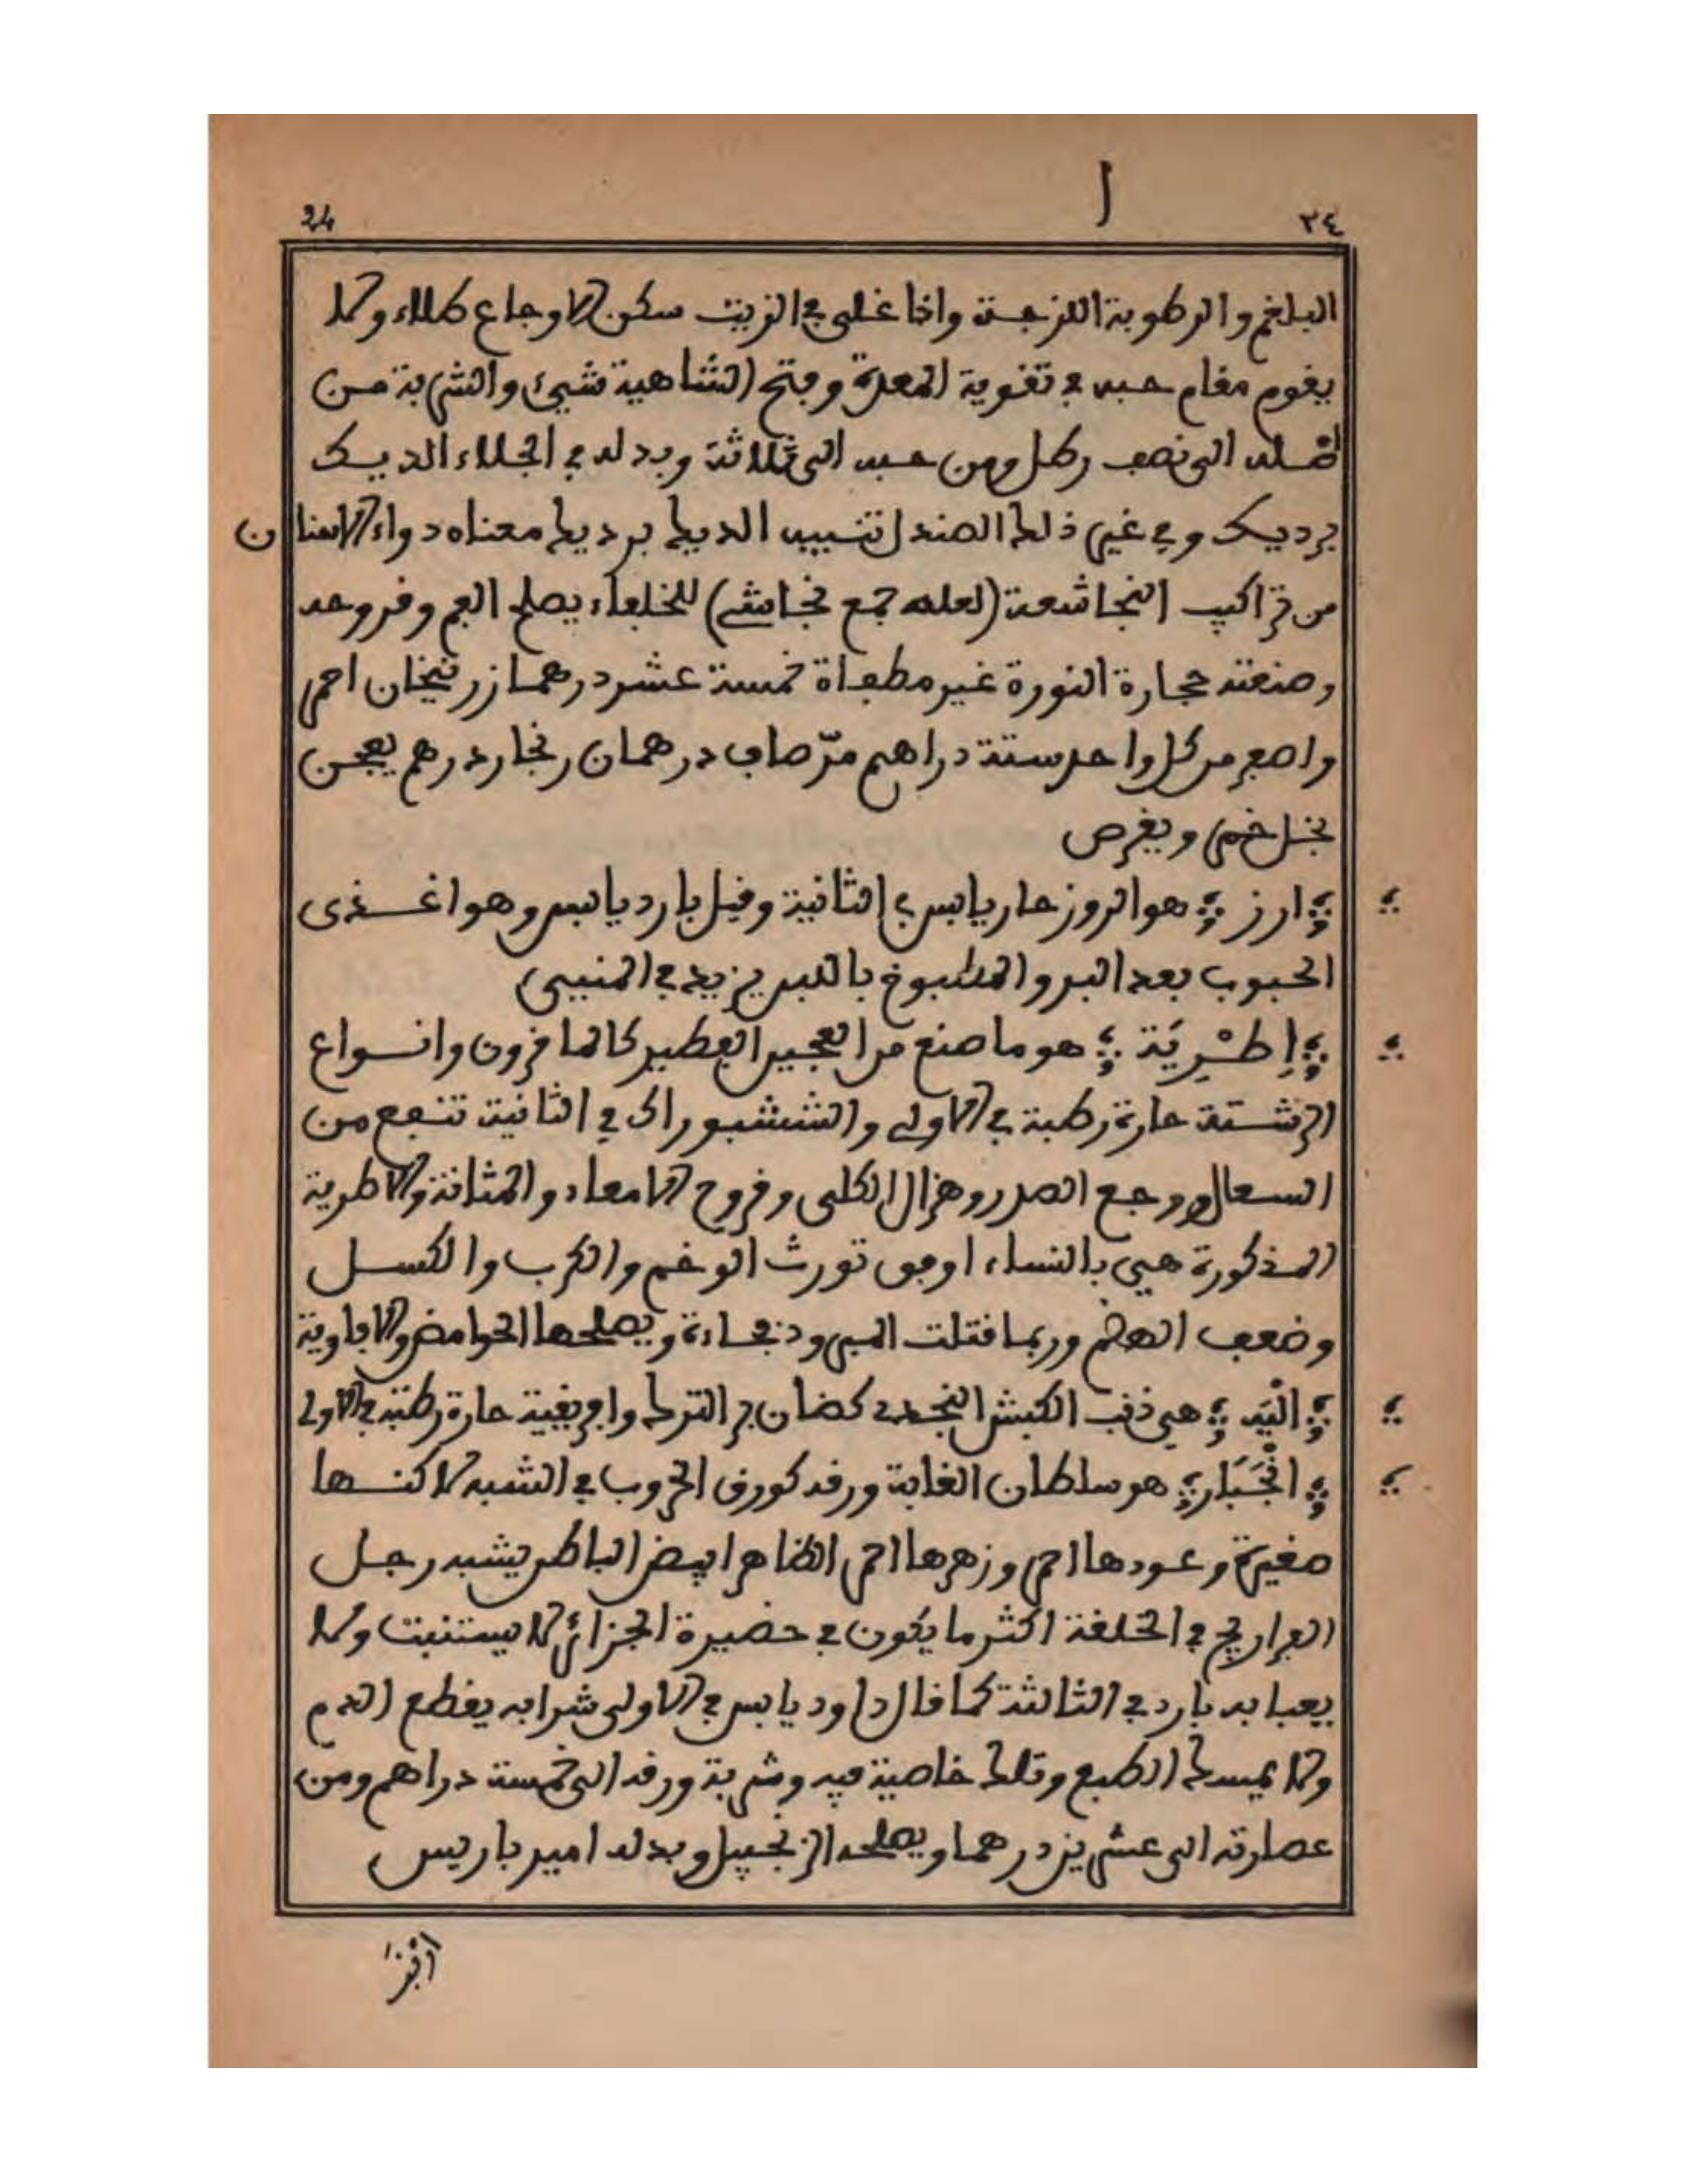 ٢٤
ا
24
البلغم والرطوبة اللزجة واذا غلى في الزيت سكن الاوجاع طلاء ولا
يقوم مقام حبه في تقوية المعدة وفتح الشاهية شيئ والشربة من
اصله الى نصف رطل ومن حبه الى ثلاثة وبدله في الجلاء الديك
برديك وفي غيره ذلك الصندل تنبيه الديك برديك معناه دواء الاسنان
من تراكيب النجاشعة (لعله جمع نجاشي) للخلفاء يصلح الفم وقروحه
وصنعته حجارة النورة غير مطفاة خمسة عشر درهما زرنيخان احمر
واصفر من كل واحد ستة دراهم مرّ صاف درهمان زنجار درهم يعجن
بخل خمر ويقرص
ارز هو الروز حار يابس في الثانية وقيل بارد يابس وهو اغذى
الحبوب بعد البر والمطبوخ باللبن يزيد في المني
اِطْرِيَة هو ما صنع من العجين الفطير كالمافرون وانواع
الرشتة حارة رطبة في الاولى والششبوراك في الثانية تنفع من
السعال ووجع الصدر وهزال الكلى وقروح الامعاء والمثانة والاطرية
المذكورة هي بالنساء اوفق تورث الوخم والكرب والكسل
وضعف الهضم وربما قتلت المبرود فجاءة ويصلحها الحوامض والافاوية
الْيَة هي ذنب الكبش النجدي كضان بر الترك وافريقية حارة رطبة في الاولى
انْجَبَار هو سلطان الغابة ورقه كورق الخروب في الشبه لاكنها
صغيرة وعودها احمر وزهرها احمر الظاهر ابيض الباطن يشبه رجل
الفراريج في الخلقة اكثر ما يكون في حضيرة الجزائر لا يستنبت ولا
يعبا به بارد في الثالثة كما قال داود يابس في الاولى شرابه يقطع الدم
ولا يمسك الطبع وتلك خاصية فيه وشربة ورقه الى خمسة دراهم ومن
عصارته الى عشرين درهما ويصلحه الزنجبيل وبدله امير باريس